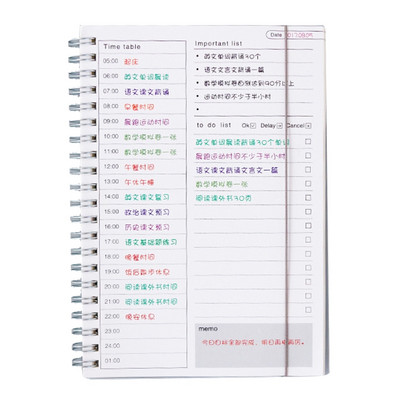 Date 20130826
Time table
05:00 起床
06:00 英文单词晨读
07:00 语文课文跳诵
08:00 早餐时间
09:00 晨跑运动时间
10:00 数学模拟卷一张
11:00 数学模拟卷一张
12:00 午餐时间
13:00 午休午睡
14:00 英文课文复习
15:00 政治课文预习
16:00 历史课文预习
17:00 语文基础题练习
18:00 晚餐时间
19:00 饭后散步休息
20:00 阅读课外书时间
21:00 阅读课外书时间
22:00 晚安休息
23:00
24:00
01:00
Important list
英文单词跳诵30个
语文文言文跳诵一篇
数学模拟卷自测达到90分以上
运动时间不少于半小时
to do list Ok Delay Cancel
英文单词晨读跳诵30个单词
晨跑运动时间不少于半小时
语文课文跳诵文言文一篇
数学模拟卷一张
阅读课外书30页
memo
今日目标全部完成，明日再接再厉。